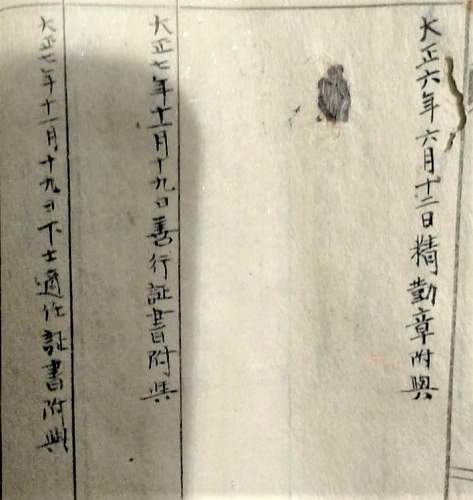 大正六年六月十二日精勤章附與
大正七年十一月十九日善行証書附與
大正七年十一月十九日下士適任証書附與